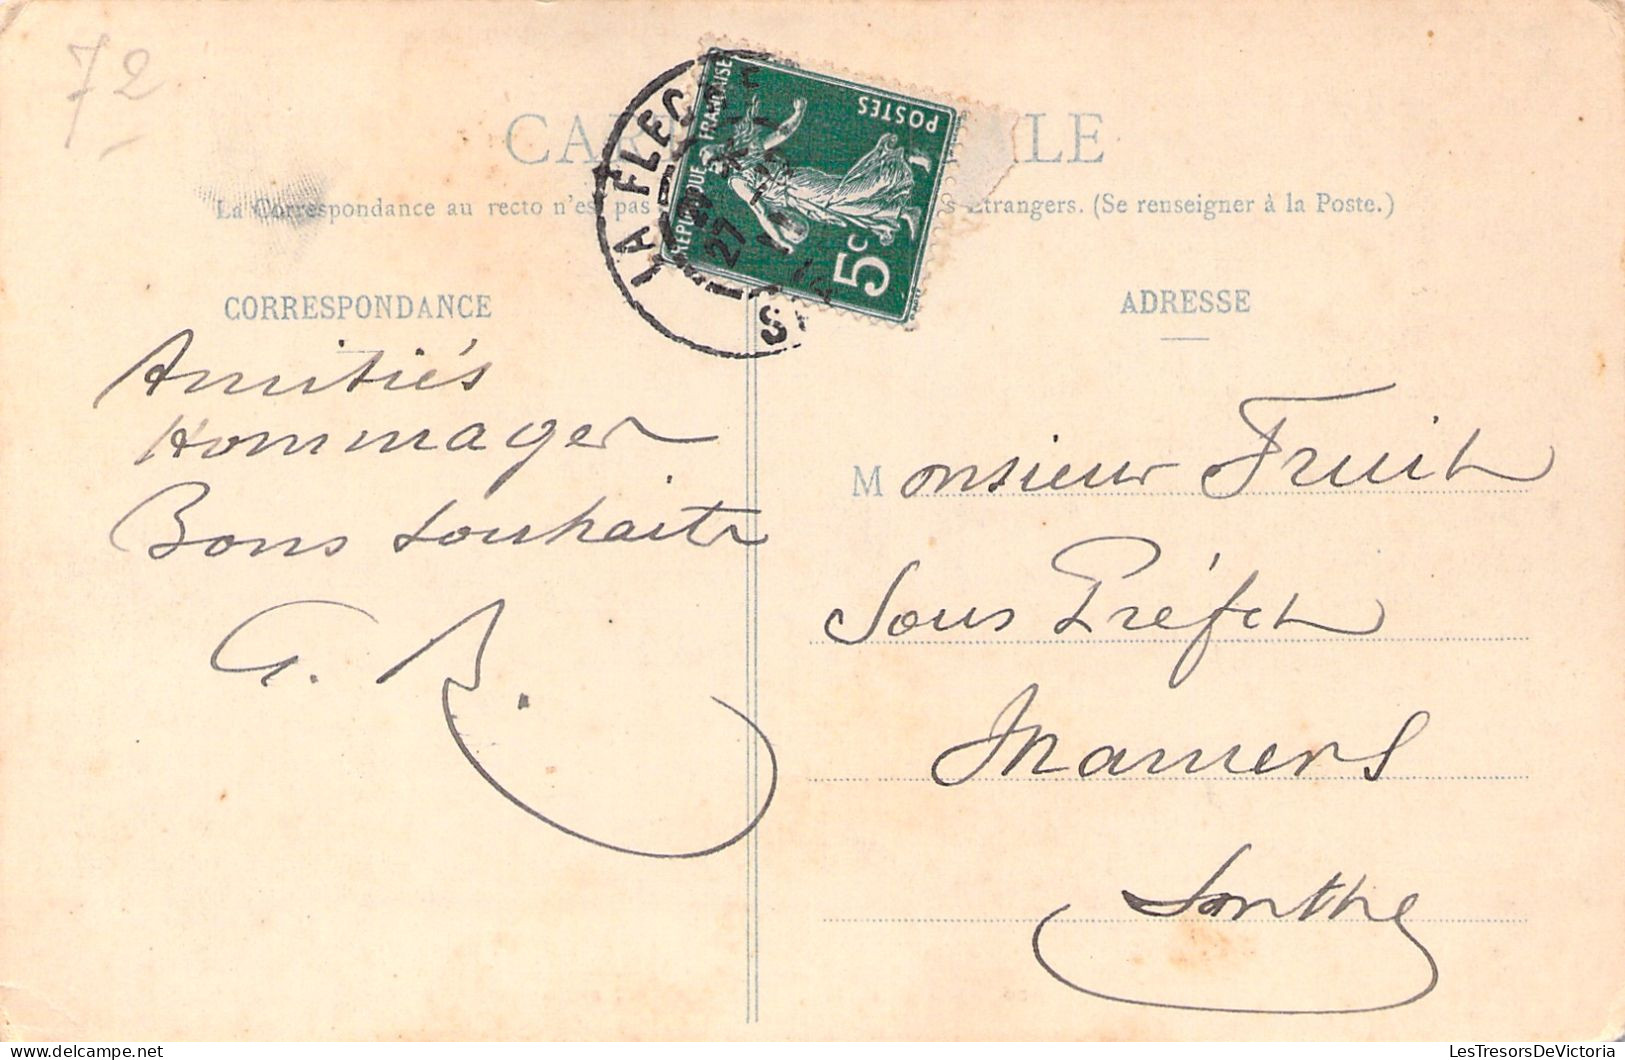 72
CAR LE
La Correspondance au recto n'est pas Étrangers. (Se renseigner à la Poste.)
LA FLEC
RÉPUBLIQUE FRANÇAISE
POSTES
5c
CORRESPONDANCE
Amitiés
Hommages
Bons souhaits
G. R.
ADRESSE
Monsieur Fruit
Sous Préfet
Mamers
Sarthe
LesTresorsDeVictoria